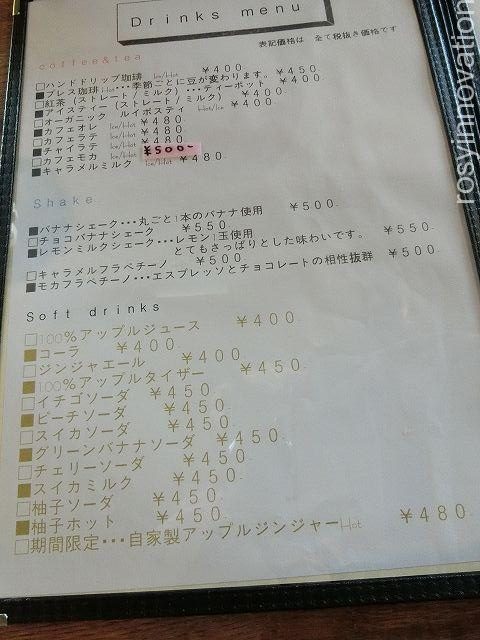 Drinks menu
表記価格は 全て税抜き価格です
coffee&tea
□ハンドドリップ珈琲 Ice/Hot ￥400.
■プレス珈琲 Hot・・・季節ごとに豆が変わります。 ￥450.
□紅茶（ストレート / ミルク）・・・ティーポット ￥400.
■アイスティー（ストレート / ミルク） ￥400.
□オーガニック ルイボスティ Hot/Ice ￥400.
■カフェオレ Ice/Hot ￥480.
□カフェラテ Ice/Hot ￥480.
■チャイラテ Ice/Hot ￥480.
□カフェモカ Ice/Hot ￥500-
■キャラメルミルク Ice/Hot ￥480.
Shake
■バナナシェーク・・・丸ごと1本のバナナ使用 ￥500.
□チョコバナナシェーク ￥550
■レモンミルクシェーク・・・レモン1玉使用
とてもさっぱりとした味わいです。 ￥550.
□キャラメルフラペチーノ ￥500.
■モカフラペチーノ・・・エスプレッソとチョコレートの相性抜群 ￥500.
Soft drinks
□100%アップルジュース ￥400.
■コーラ ￥400.
□ジンジャエール ￥400.
■100%アップルタイザー ￥450.
□イチゴソーダ ￥450
■ピーチソーダ ￥450.
□スイカソーダ ￥450.
■グリーンバナナソーダ ￥450.
□チェリーソーダ ￥450.
■スイカミルク ￥450.
□柚子ソーダ ￥450.
■柚子ホット ￥450.
□期間限定・・・自家製アップルジンジャーHot ￥480.
rosyinnovation